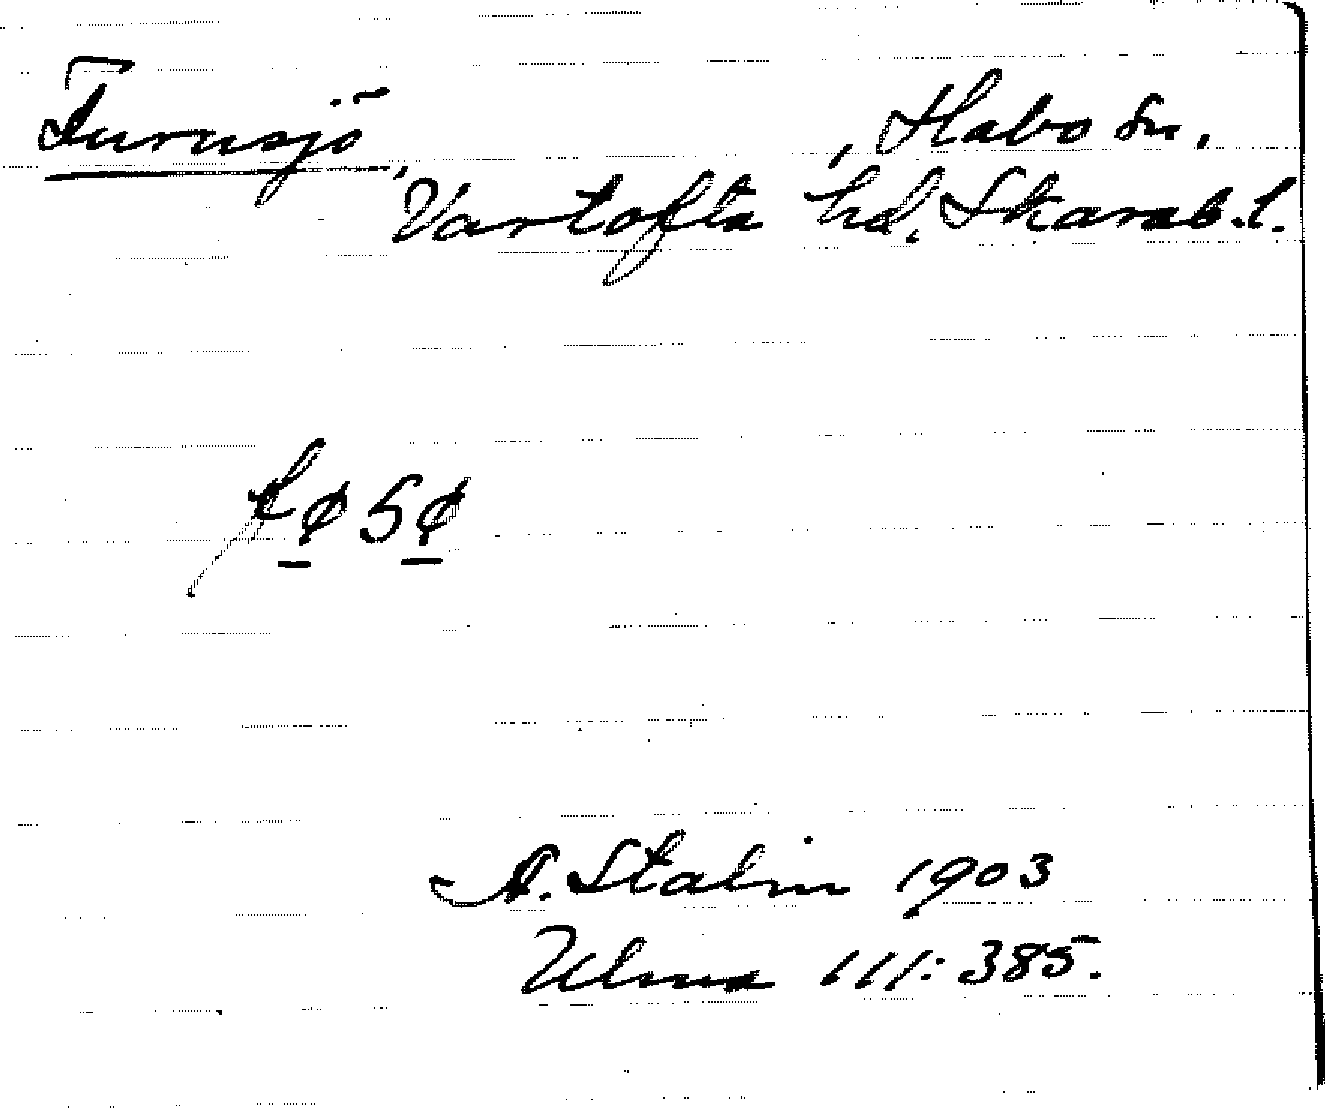 Furusjö, , Habo sn,
Vartofta hd, Skarab. l.
A. Stalin 1903
Ulma 111:385.